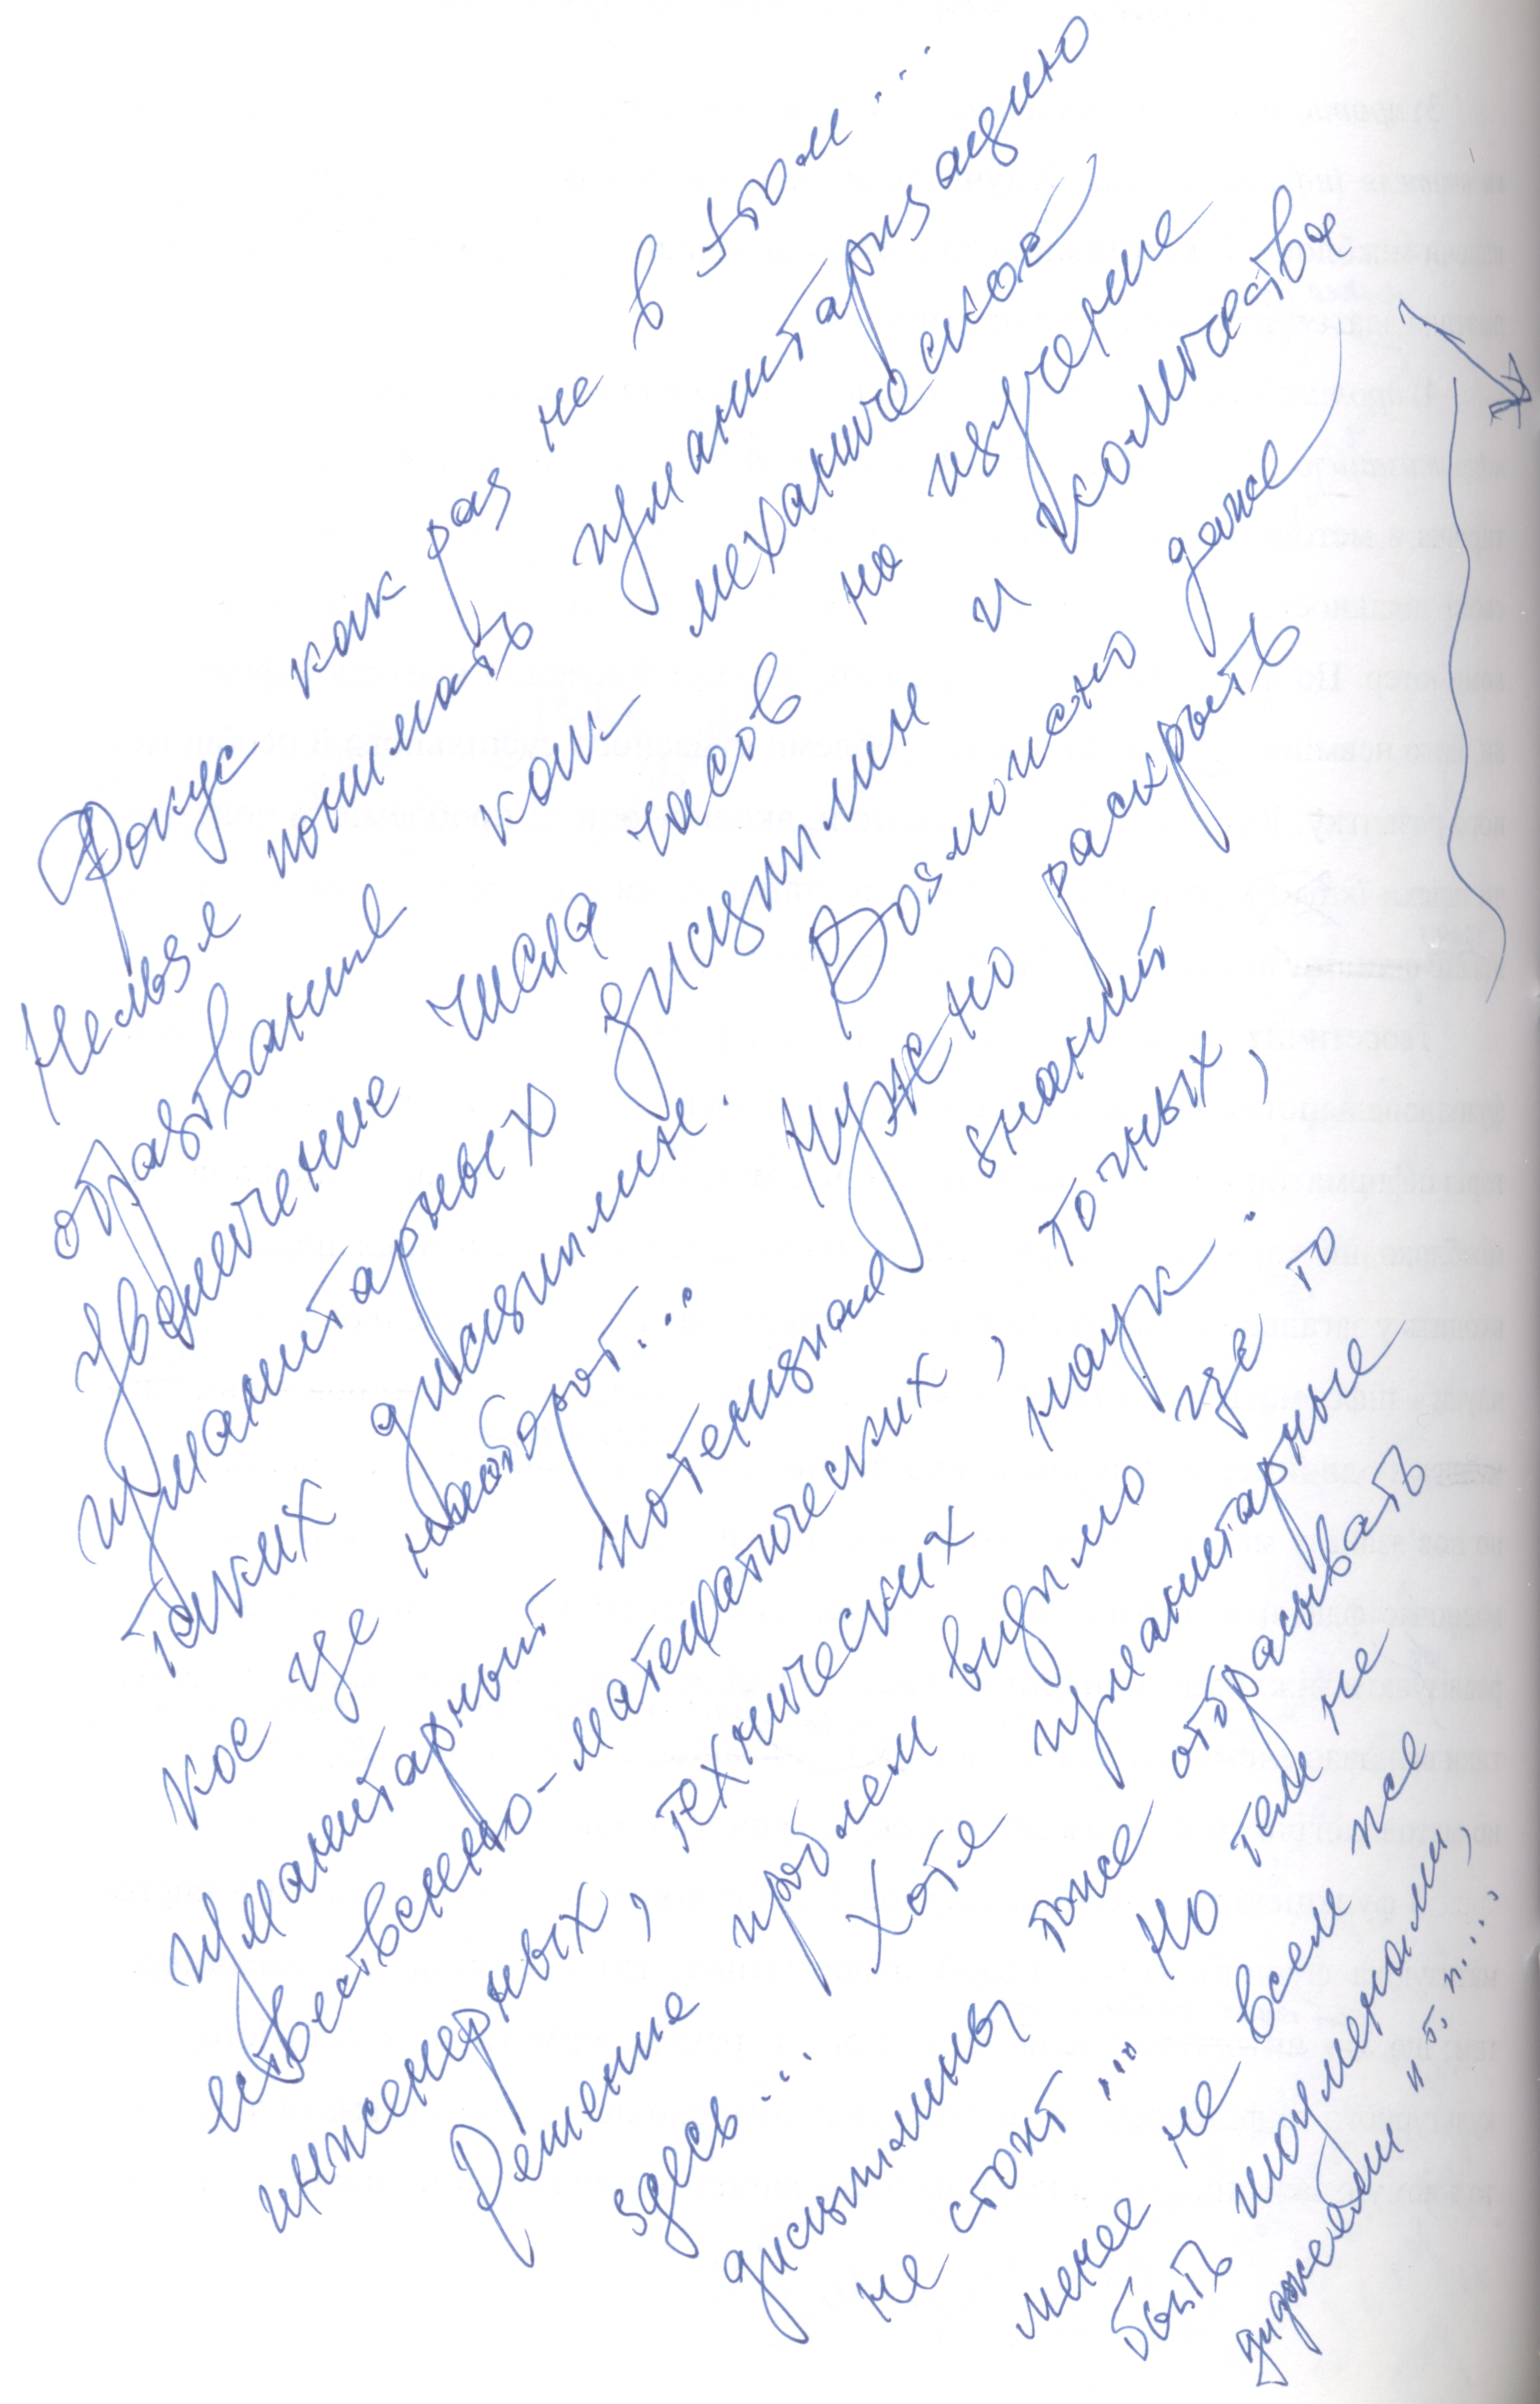 Фокус как раз не в этом...
Нельзя понимать гуманитаризацию
образования как механическое
увеличение числа часов на изучение
гуманитарных дисциплин и количества
таких дисциплин. Возможно даже
кое где наоборот... Нужно раскрыть
гуманитарный потенциал знаний
естественно-математических, точных,
инженерных, технических наук.
Решение проблем видимо где то
здесь... Хотя гуманитарные
дисциплины тоже отбрасывать
не стоит... Но тем не
менее не всем же
быть шоуменами,
диджеями и т. п....